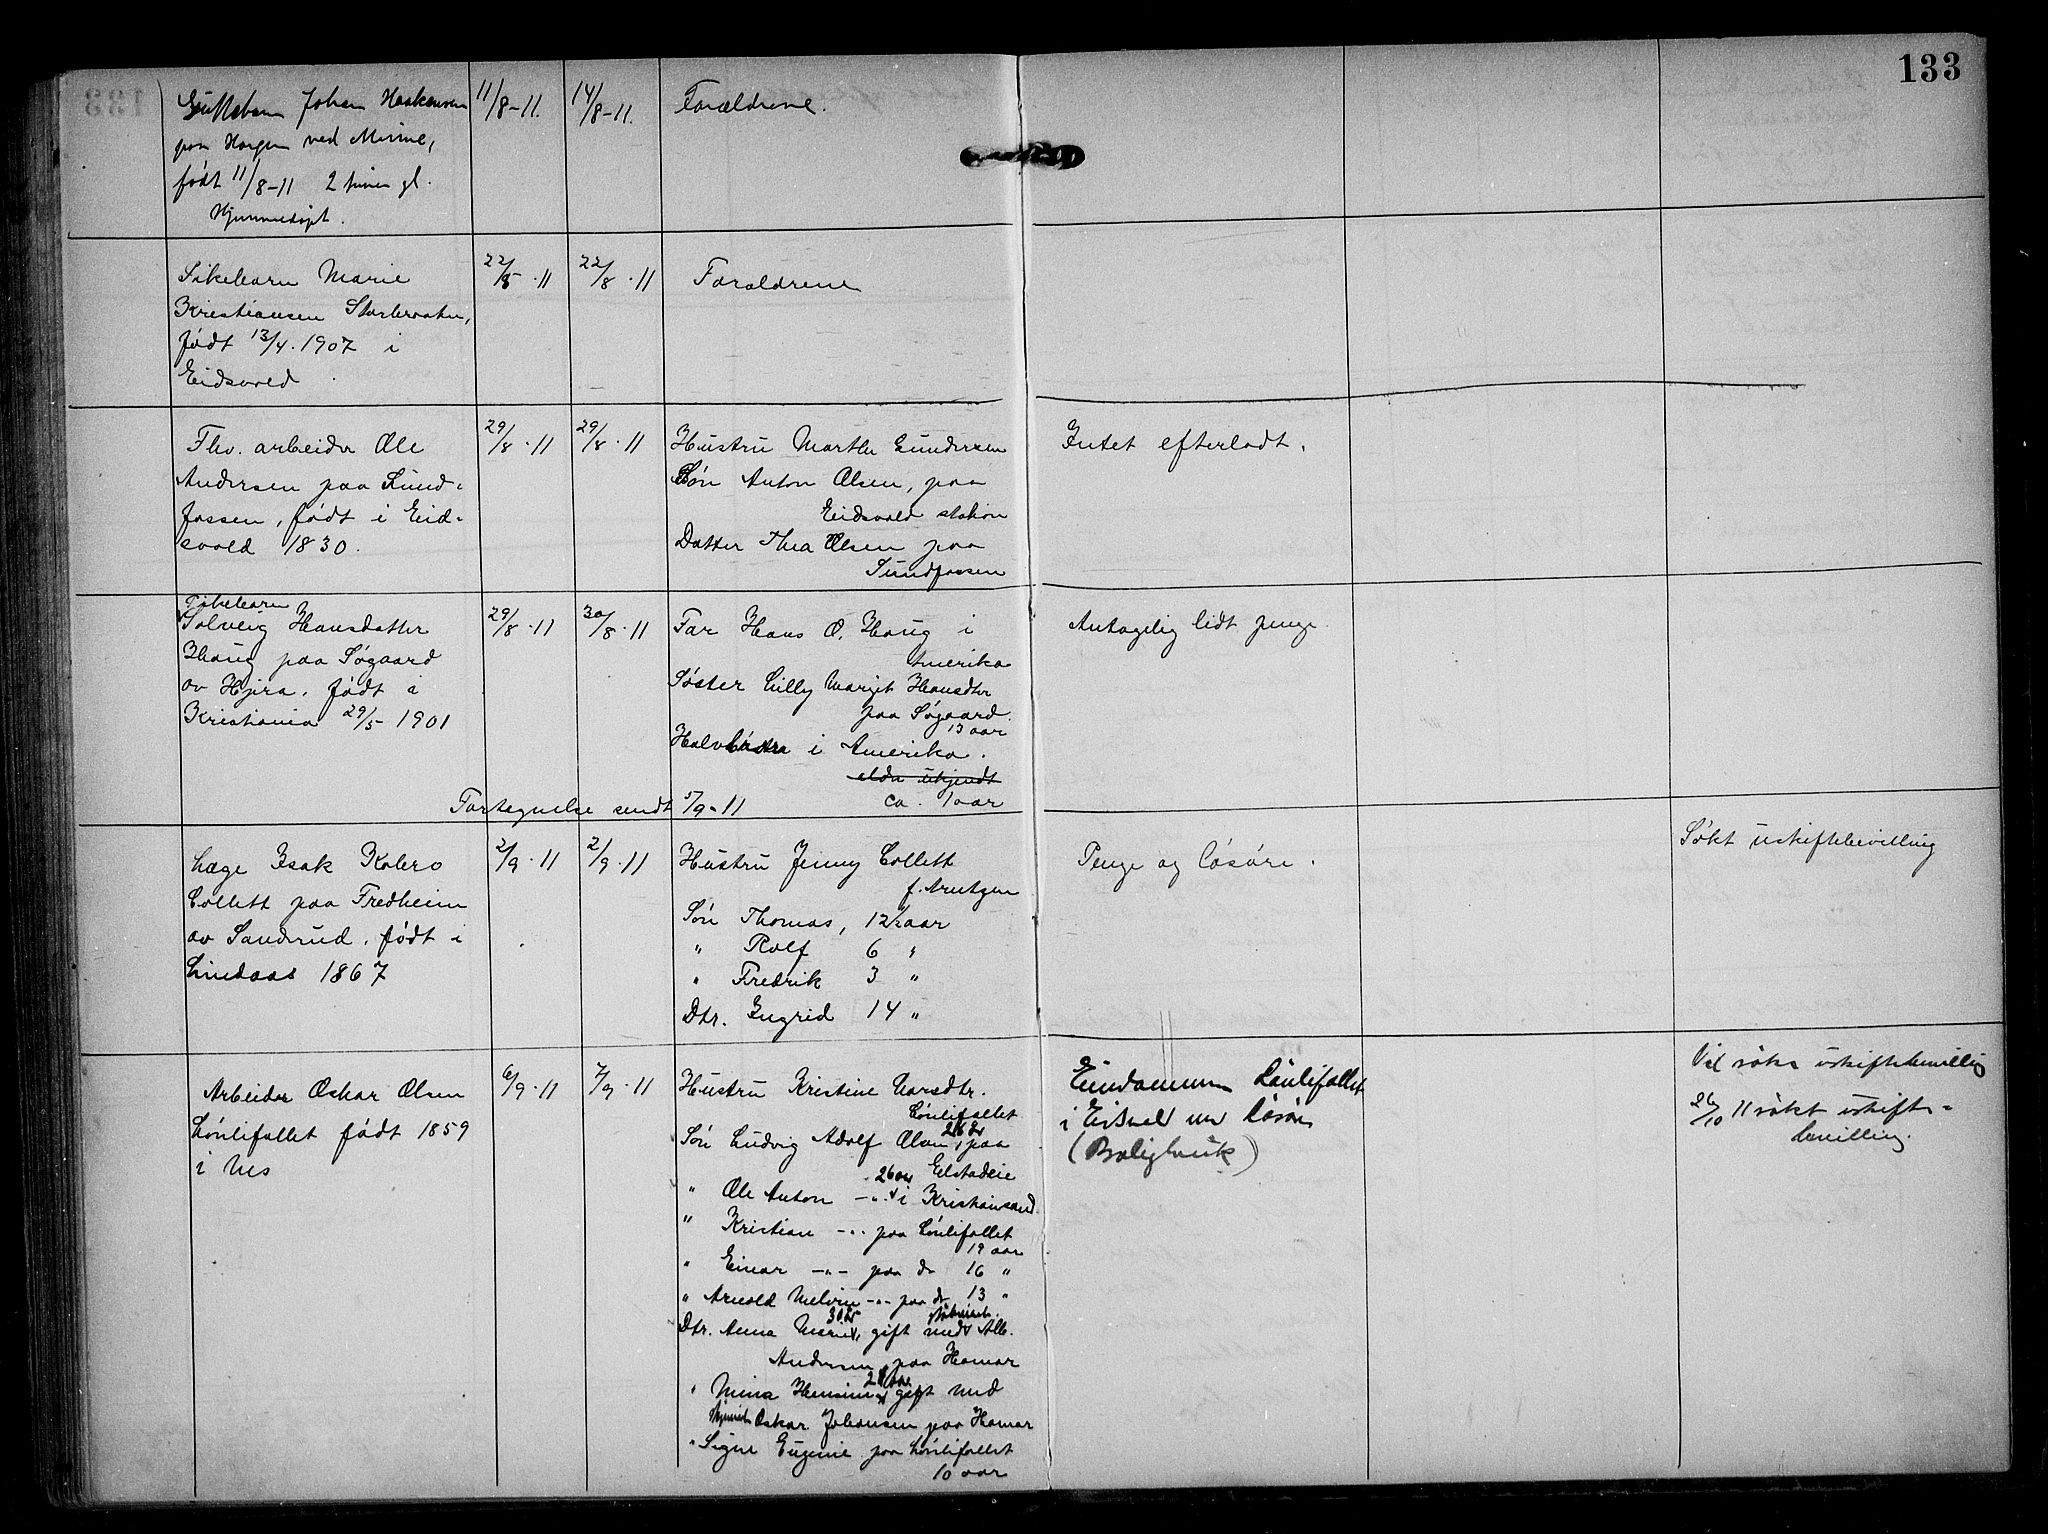 133
Guttebarn Johan Haakensen 11/8-11. 14/8-11. Forældrene.
paa Horgen ved Minne,
født 11/8-11 2 timer gl.
Hjemmedøpt.
Pikebarn Marie 22/8·11 22/8·11 Foraldrene
Kristiansen
født 13/4·1907 i
Eidsvold
Flv. arbeider Ole 29/8·11 29/8·11 Hustru Marthe Gundersen Intet efterladt.
Andersen paa Sund- Søn Anton Olsen, paa
fossen, født i Eid- Eidsvold station
svold 1830. Datter Thea Olsen paa
Sundfossen
Pikebarn
Solveig Hansdatter 29/8·11 30/8·11 Far Hans O. Haug i Antagelig lidt penge.
Haug paa Søgaard Amerika
av Hjera. født i Søster Lilly Margit Hansdtr
Kristiania 29/5 1901 paa Søgaard.
13 aar
Halvbrødre i Amerika.
alder ukjendt
Fortegnelse sendt 5/9-11 ca. 1 aar
Læge Isak Kobro 2/9·11 2/9·11 Hustru Jenny Collett Penge og løsøre. Søkt uskiftebevilling
Collett paa Fredheim f. Arntzen
av Sanderud. født i Søn Thomas, 12½ aar
Lindaas 1867 " Rolf 6 "
" Fredrik 3 "
Dtr. Ingrid 14 "
Arbeider Oskar Olsen 6/9·11 7/9·11 Hustru Kristine Larsdtr. Eiendommen Lønlifallet Vil søke uskiftebevilling
Lønlifallet født 1859 Lønlifallet i Eidsvol med løsøre 26/10 11 søkt uskifte-
i Nes Søn Ludvig Adolf Olsen, paa (Boligbruk) bevilling.
Eelstadeie
" Ole Anton -"- 26 aar i Kristiansand.
" Kristian -"- paa Lønlifallet
19 aar
" Einar -"- paa do 16 "
" Arnold Melvin -"- paa do 13 "
Dtr. Anna Marie, 30 år gift med Alb.
Andersen, paa Hamar
" Mina gift med
Oskar Johansen paa Hamar
" Signe Eugenie paa Lønlifallet
10 aar